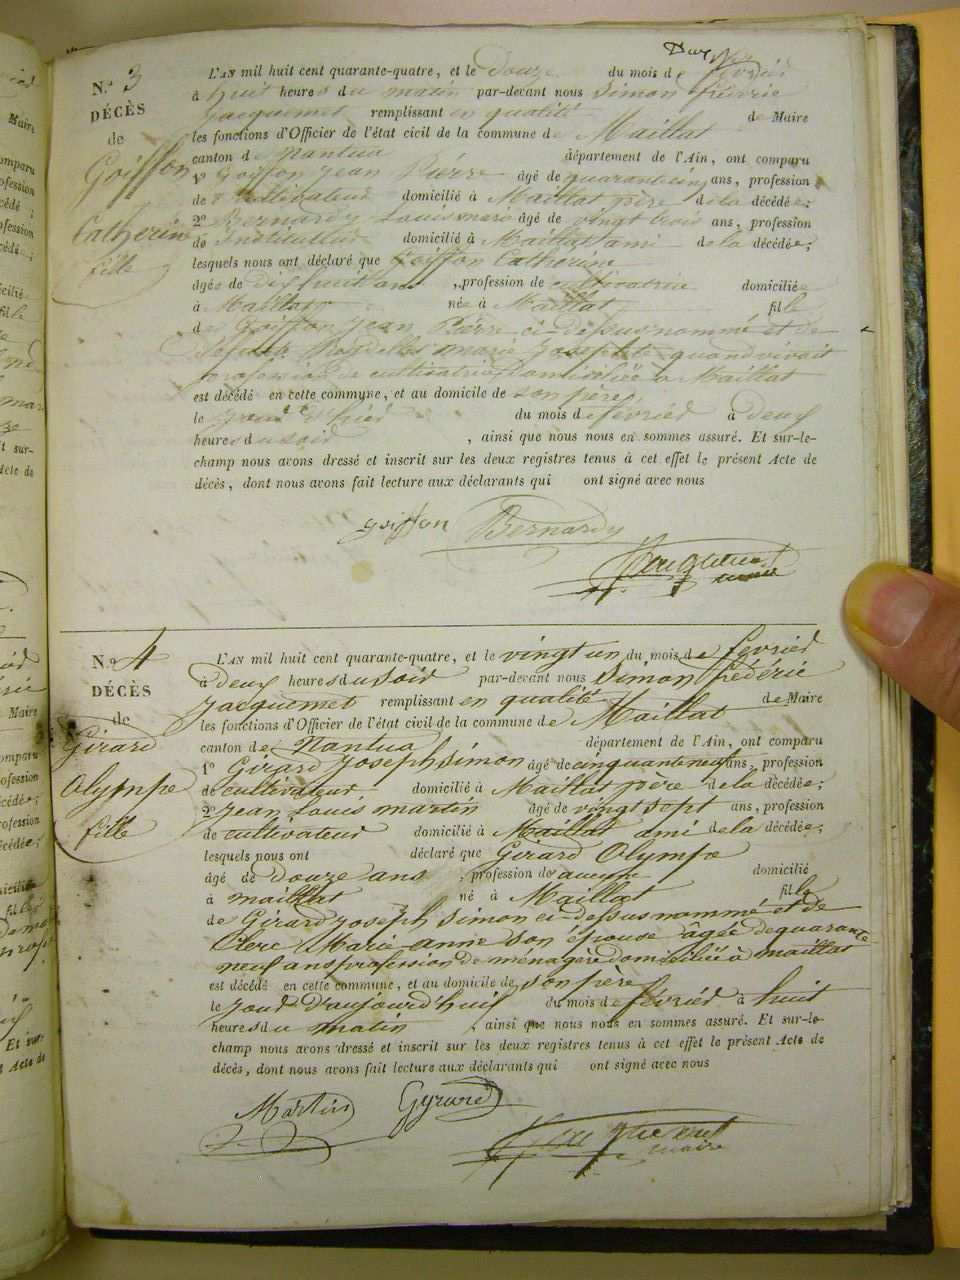 N.o 3
DÉCÈS
de
Goiffon
Catherine
fille
L'AN mil huit cent quarante-quatre, et le douze du mois de février
à huit heures du matin par-devant nous Simon frédéric
Jacquemet remplissant en qualité de Maire
les fonctions d'Officier de l'état civil de la commune de Maillat
canton de Nantua département de l'Ain, ont comparu
1o Goiffon Jean Pierre âgé de quarante cinq ans, profession
de cultivateur domicilié à Maillat père de la décédée;
2o Bernardy Louis marie âgé de vingt trois ans, profession
de Instituteur domicilié à Maillat ami de la décédée;
lesquels nous ont déclaré que Goiffon Catherine
âgée de dix huit ans, profession de cultivatrice domiciliée
à Maillat née à Maillat fille
de Goiffon Jean Pierre ci-dessus nommé et de
marie Josephte quand vivait
profession de cultivatrice domiciliée à Maillat
est décédé en cette commune, et au domicile de son père,
le jour d'hier du mois de février à deux
heures du soir, ainsi que nous nous en sommes assuré. Et sur-le-
champ nous avons dressé et inscrit sur les deux registres tenus à cet effet le présent Acte de
décès, dont nous avons fait lecture aux déclarants qui ont signé avec nous
goiffon Bernardy
Jacquemet
maire
N.o 4
DÉCÈS
de
Girard
Olympe
fille
L'AN mil huit cent quarante-quatre, et le vingt un du mois de février
à deux heures du soir par-devant nous Simon frédéric
Jacquemet remplissant en qualité de Maire
les fonctions d'Officier de l'état civil de la commune de Maillat
canton de Nantua département de l'Ain, ont comparu
1o Girard Joseph Simon âgé de cinquante neuf ans, profession
de cultivateur domicilié à Maillat père de la décédée;
2o Jean Louis martin âgé de vingt sept ans, profession
de cultivateur domicilié à Maillat ami de la décédée;
lesquels nous ont déclaré que Girard Olympe
âgé de douze ans, profession de aucune domicilié
à maillat né à Maillat fille
de Girard Joseph Simon ci-dessus nommé et de
Marie-anne son épouse âgée de quarante
neuf ans profession de ménagère domiciliée à maillat
est décédé en cette commune, et au domicile de son père
le jour d'aujourd'hui du mois de février à huit
heures du matin, ainsi que nous nous en sommes assuré. Et sur-le-
champ nous avons dressé et inscrit sur les deux registres tenus à cet effet le présent Acte de
décès, dont nous avons fait lecture aux déclarants qui ont signé avec nous
Martin Gyrard
Jacquemet
maire